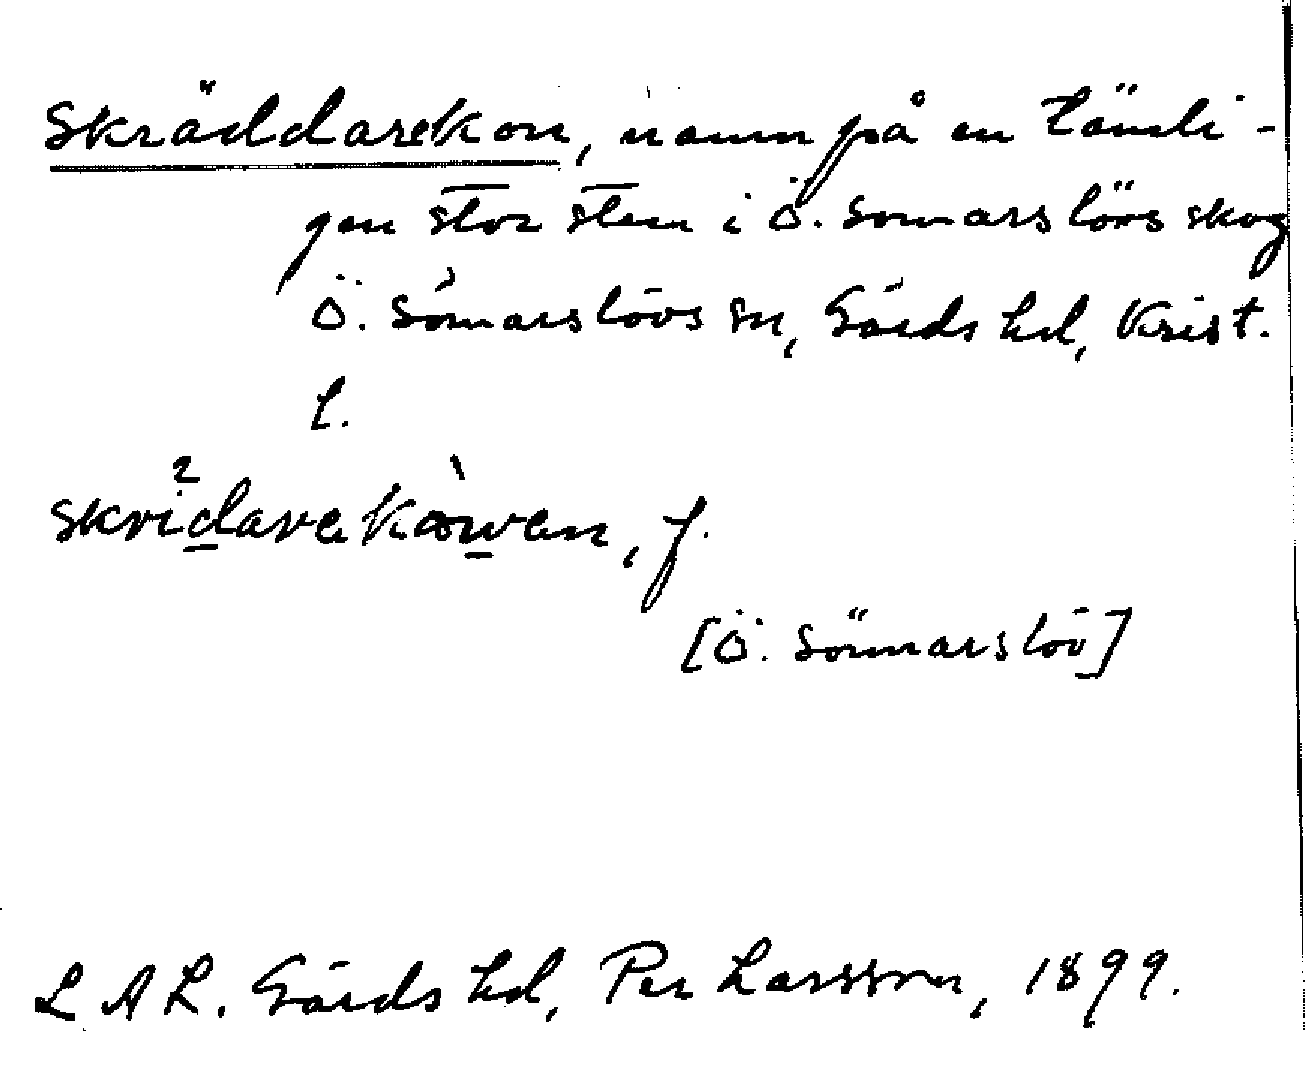 Skräddarekon, namn på en tämli-
gen stor sten i Ö. Sönnarslövs skog
Ö. Sönnarslövs sn, Gärds hd, Krist.
l.
skridarekåwen, f.
[Ö. Sönnarslöv]
L A L. Gärds hd, Per Larsson, 1899.